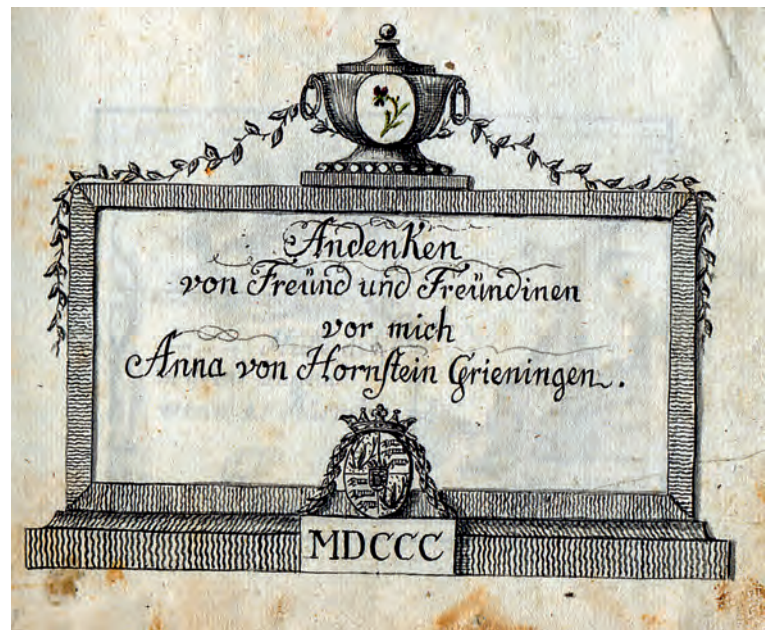 Andenken
von Freünd und Freündinen
vor mich
Anna von Hornstein Grieningen.
MDCCC